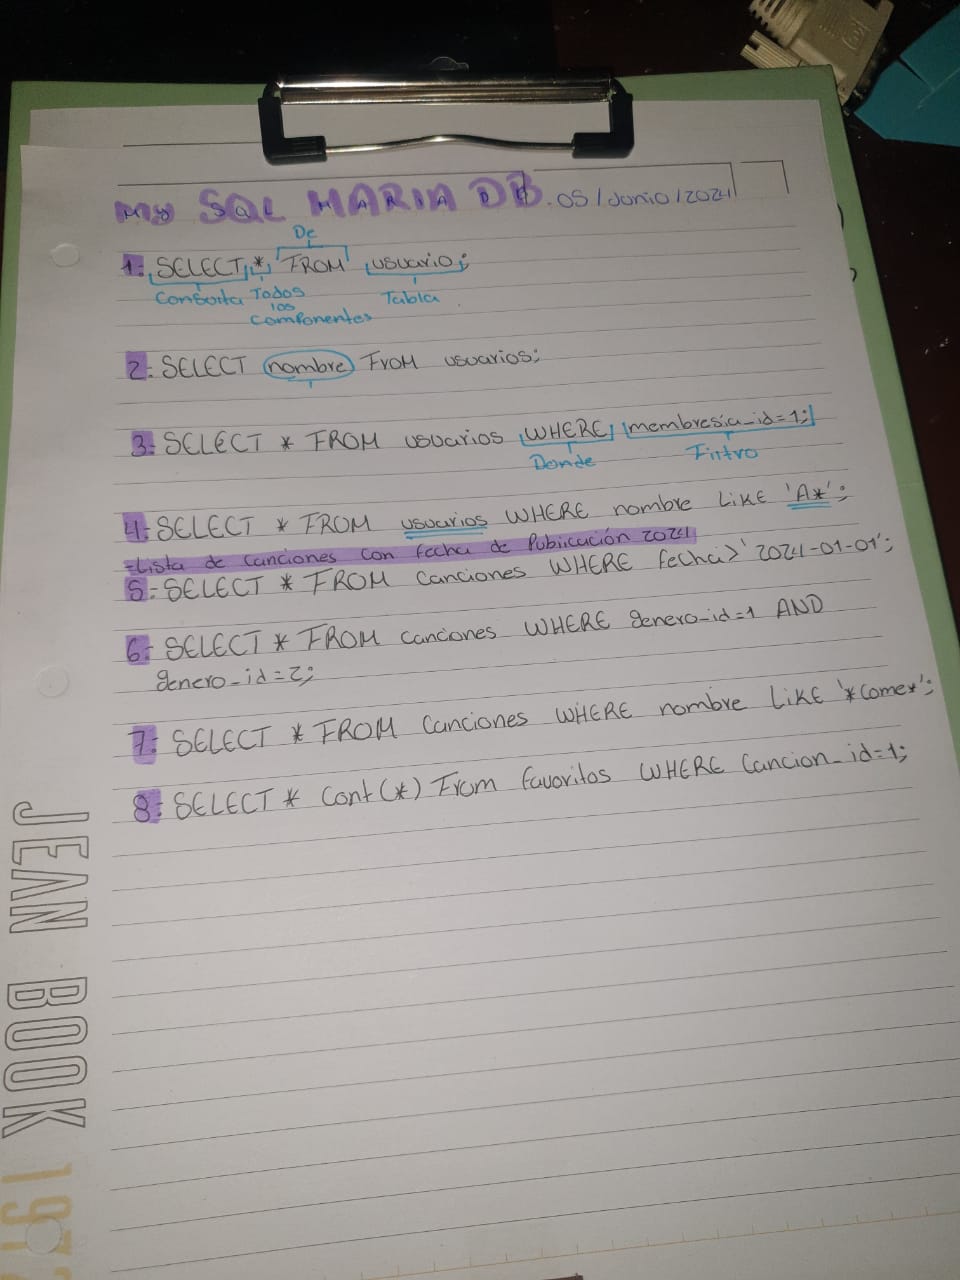 My SQL MARIA DB. 05/Junio/2024
De
1: SELECT * FROM usuario;
Consulta Todos los Componentes Tabla
2: SELECT nombre From usuarios;
3: SELECT * FROM usuarios WHERE membresia_id=1;
Donde Filtro
4: SELECT * FROM usuarios WHERE nombre LIKE 'A*';
-Lista de canciones con fecha de Publicación 2024
5: SELECT * FROM canciones WHERE fecha>'2024-01-01';
6: SELECT * FROM canciones WHERE genero_id=1 AND
genero_id=2;
7: SELECT * FROM Canciones WHERE nombre LIKE '*Come*';
8: SELECT * Cont(*) From favoritos WHERE Cancion_id=1;
JEAN BOOK 197